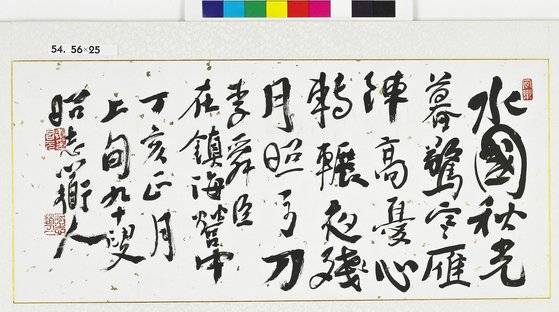 54. 56×25
水國秋光
暮驚寒雁
陣高憂心
轉輾夜殘
月照弓刀
李舜臣
在鎮海營中
丁亥正月
上旬九十叟